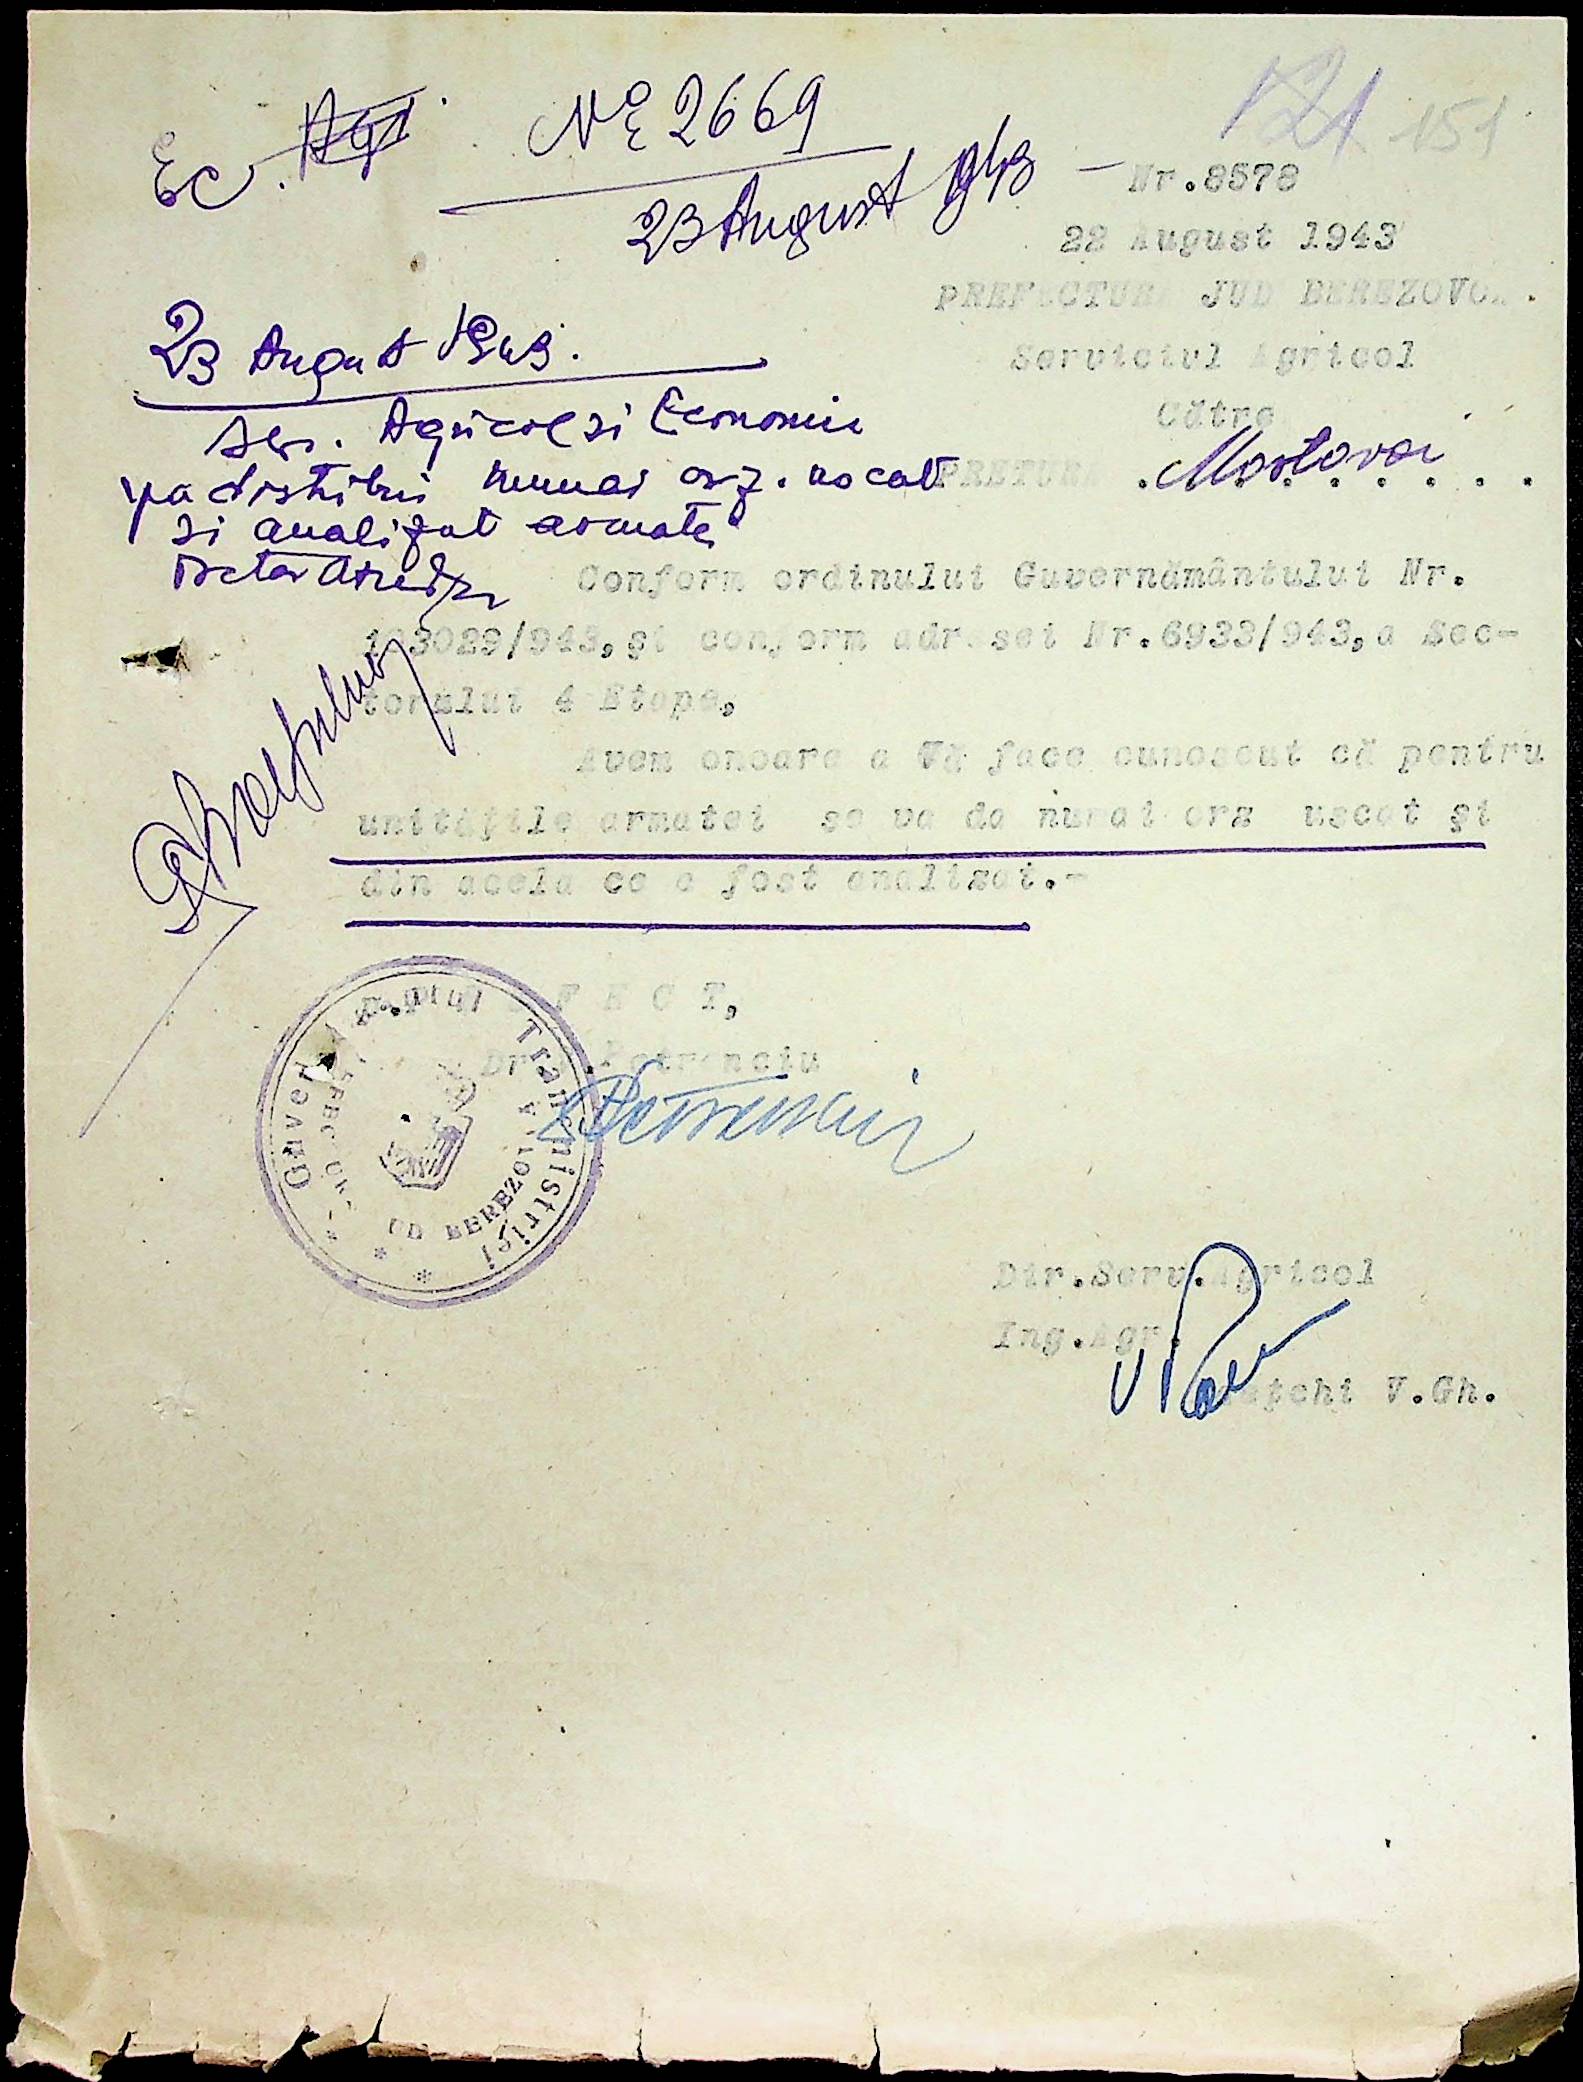 Ec. Agr.
№ 2669
23 August 943
121 151
Nr.8578
22 August 1943
PREFECTURA JUD BEREZOVCA.
Serviciul Agricol
Către
PRETURA Mostovoi
23 August 1943.
Ser. Agricol si Economic
va distribui numai orz. uscat
si analizat armatei
Conform ordinului Guvernământului Nr.
103029/943, şi conform adresei Nr.6933/943, a Sec-
torului 4 Etape,
Avem onoare a Vă face cunoscut că pentru
unităţile armatei se va da numai orz uscat şi
din acela ce a fost analizat.-
F E C T,
Dr. Petrenciu
Transnistriei
JUD BEREZOV
Dir.Serv.Agricol
Ing.Agr.
V.Gh.